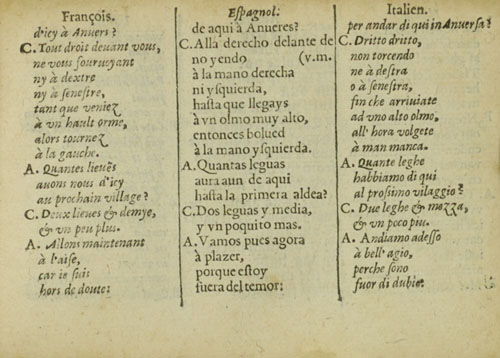 François.
d'icy à Anuers?
C. Tout droit deuant vous,
ne vous fouruoyant
ny à dextre
ny à senestre,
tant que veniez
à vn hault orme,
alors tournez
à la gauche.
A. Quantes lieuës
auons nous d'icy
au prochain village?
C. Deux lieues & demye,
& vn peu plus.
A. Allons maintenant
à l'aise,
car ie suis
hors de doute:
Espagnol:
de aqui à Anueres?
C. Allà derecho delante de
no yendo (v.m.
à la mano derecha
ni ysquierda,
hasta que llegays
à vn olmo muy alto,
entonces bolued
à la mano ysquierda.
A. Quantas leguas
aura aun de aqui
hasta la primera aldea?
C. Dos leguas y media,
y vn poquito mas.
A. Vamos pues agora
à plazer,
porque estoy
fuera del temor:
Italien.
per andar di qui in Anuersa?
C. Dritto dritto,
non torcendo
ne à destra
o à senestra,
fin che arriuiate
ad vno alto olmo,
all' hora volgete
à man manca.
A. Quante leghe
habbiamo di qui
al prossimo vilaggio?
C. Due leghe & mezza,
& vn poco piu.
A. Andiamo adesso
à bell' agio,
perche sono
fuor di dubie.